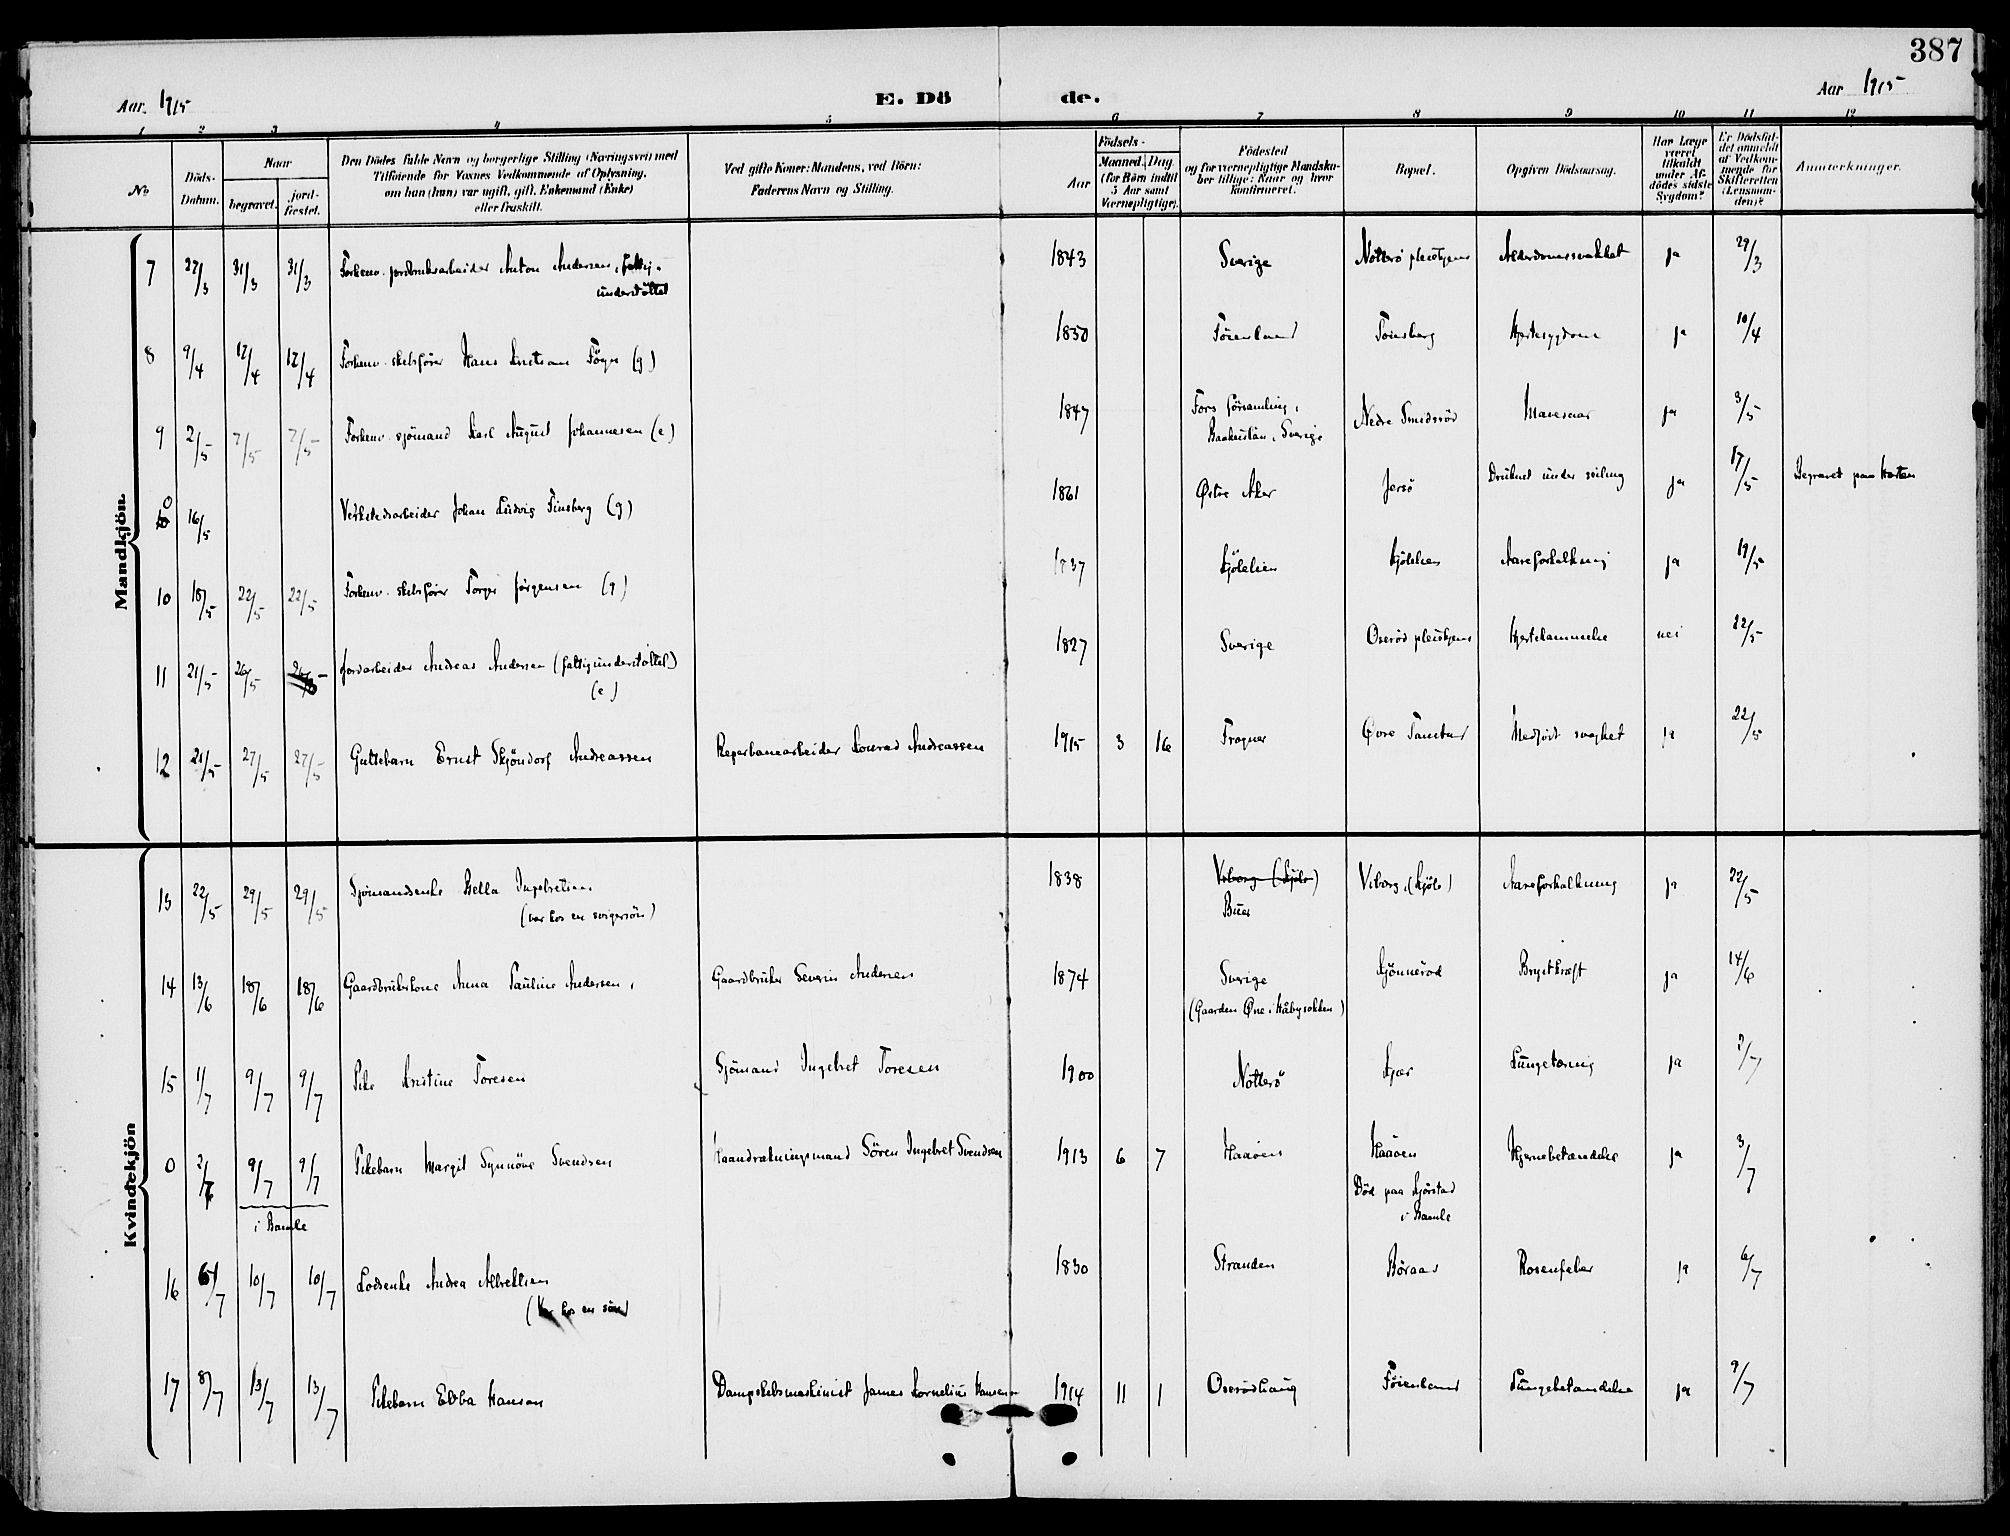 387
Aar 1915
E. Dö de.
Aar 1915
1 2 3 4 5 6 7 8 9 10 11 12
No
Döds-Datum.
Naar
begravet.
jord-fæstet.
Den Dödes fulde Navn og borgerlige Stilling (Næringsvei) med
Tilföiende for Voxnes Vedkommende af Oplysning,
om han (hun) var ugift, gift, Enkemand (Enke)
eller fraskilt.
Ved gifte Koner: Mandens, ved Börn:
Faderens Navn og Stilling.
Födsels-
Aar
Maaned. Dag.
(for Börn indtil
5 Aar samt
Værnepligtige).
Födested
og for værnepligtige Mandskaber tillige: Naar og hvor
konfirmeret.
Bopæl.
Opgiven Dödsaarsag.
Har Læge været tilkaldt under Afdödes sidste Sygdom?
Er Dödsfaldet anmeldt af Vedkommende for Skifteretten (Lensmanden)?
Anmerkninger.
Mandkjön.
7 27/3 31/3 31/3 Forhenv. jordbruksarbeider Anton Andersen, fattig-
understöttet
1843 Sverige Nötterö pleiehjem Alderdomssvakhet ja 29/3
8 9/4 17/4 17/4 Forhenv. skibsförer Hans Kristian Föyn (g)
1850 Föienland Tönsberg Hjertesygdom ja 10/4
9 2/5 7/5 7/5 Forhenv. sjömand Karl August Johannesen (e)
1847 Fors församling, Sverige Nedre Smidsröd Mavesaar ja 3/5
0 16/5 Verkstedsarbeider Johan Ludvig Finsberg (g)
1861 Østre Aker Jersö Druknet under seiling ja 17/5 Begravet paa Horten
10 18/5 22/5 22/5 Forhenv. skibsförer Torger Jörgensen (g)
1837 Kjölelien Kjölelien Aareforkalkning ja 19/5
11 21/5 26/5 Jordarbeider Andreas Andersen (fattigunderstöttet)
(e)
1827 Sverige Oseröd pleiehjem Hjertelammelse nei 22/5
12 21/5 27/5 27/5 Guttebarn Ernst Skjöndorf Andreassen Reperbanearbeider Konrad Andreassen
1915 3 16 Trogner Övre Tanstad Medfödt svaghet ja 22/5
Kvindekjön
13 22/5 29/5 29/5 Sjömandsenke Bella Ingebretsen
(var hos en svigersön)
1838 Viborg (Kjöle) Buer Viborg, (Kjöle) Aareforkalkning ja 22/5
14 13/6 18/6 18/6 Gaardbrukerkone Anna Pauline Andersen, Gaardbruker Severin Andersen
1874 Sverige Kjönneröd Brystkræft ja 14/6
(Gaarden Öne i Håbysokken)
15 1/7 9/7 9/7 Pike Kristine Toresen Sjömand Ingebret Toresen
1900 Nötterö Kjær Lungetæring ja 2/7
0 2/7 9/7 9/7 Pikebarn Margit Synnöve Svendsen Haandrækningsmand Sören Ingebret Svendsen
i Bamle
1913 6 7 Haaöen Haaöen Hjernebetændelse ja 3/7
Död paa Kjörstad
i Bamle
16 6/7 10/7 10/7 Losenke Andrea Albrektsen
(Var hos en sön)
1830 Stranden Böraas Rosenfeber ja 6/7
17 8/7 13/7 13/7 Pikebarn Ebba Hansen Dampskibsmaskinist James Kornelius Hansen
1914 11 1 Oserödhaug Föienland Lungebetændelse ja 9/7